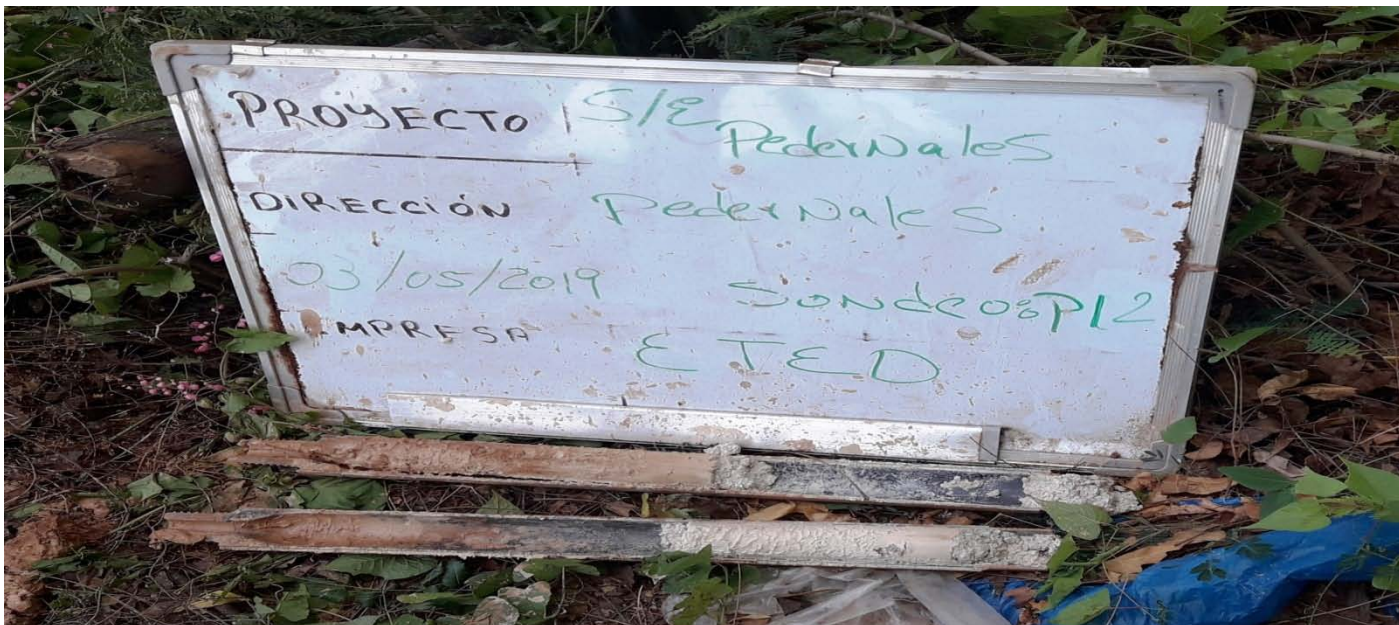 PROYECTO S/E PederNales
DIRECCIÓN PederNales
03/05/2019 SONdeo: P12
EMPRESA ETED